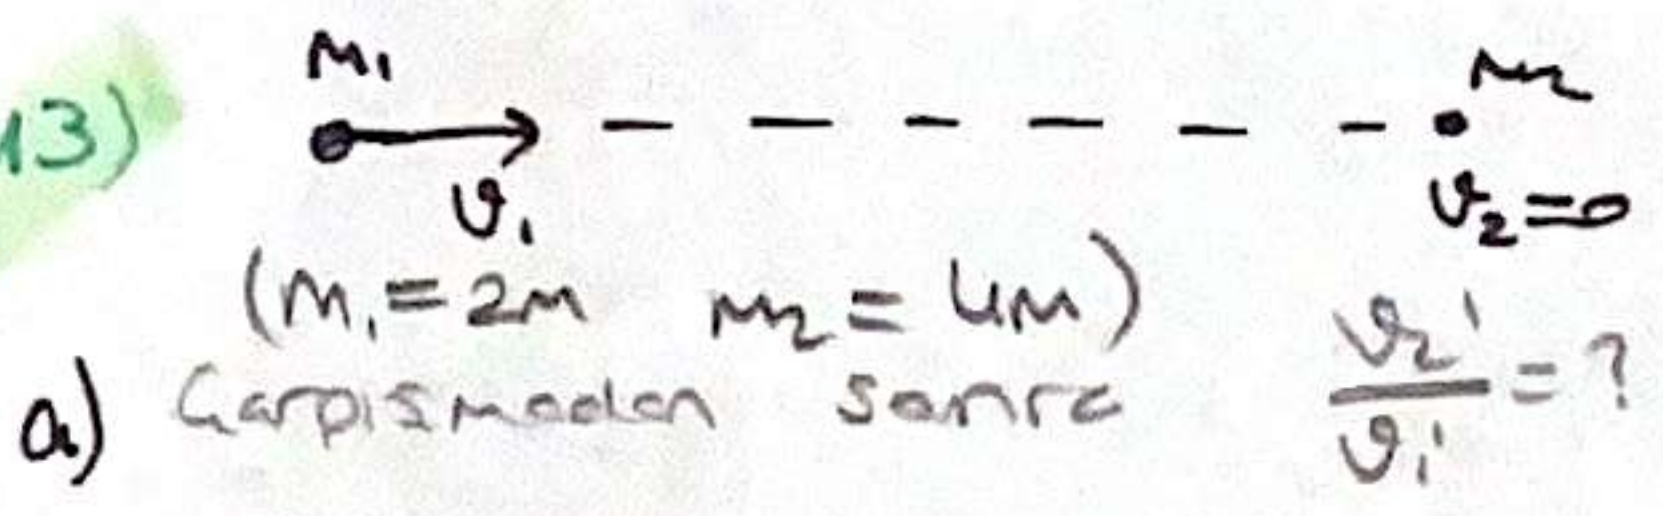 13) m₁ m₂
v₁ v₂=0
(m₁=2m m₂=4m)
a) Çarpışmadan sonra v₂'/v₁' = ?